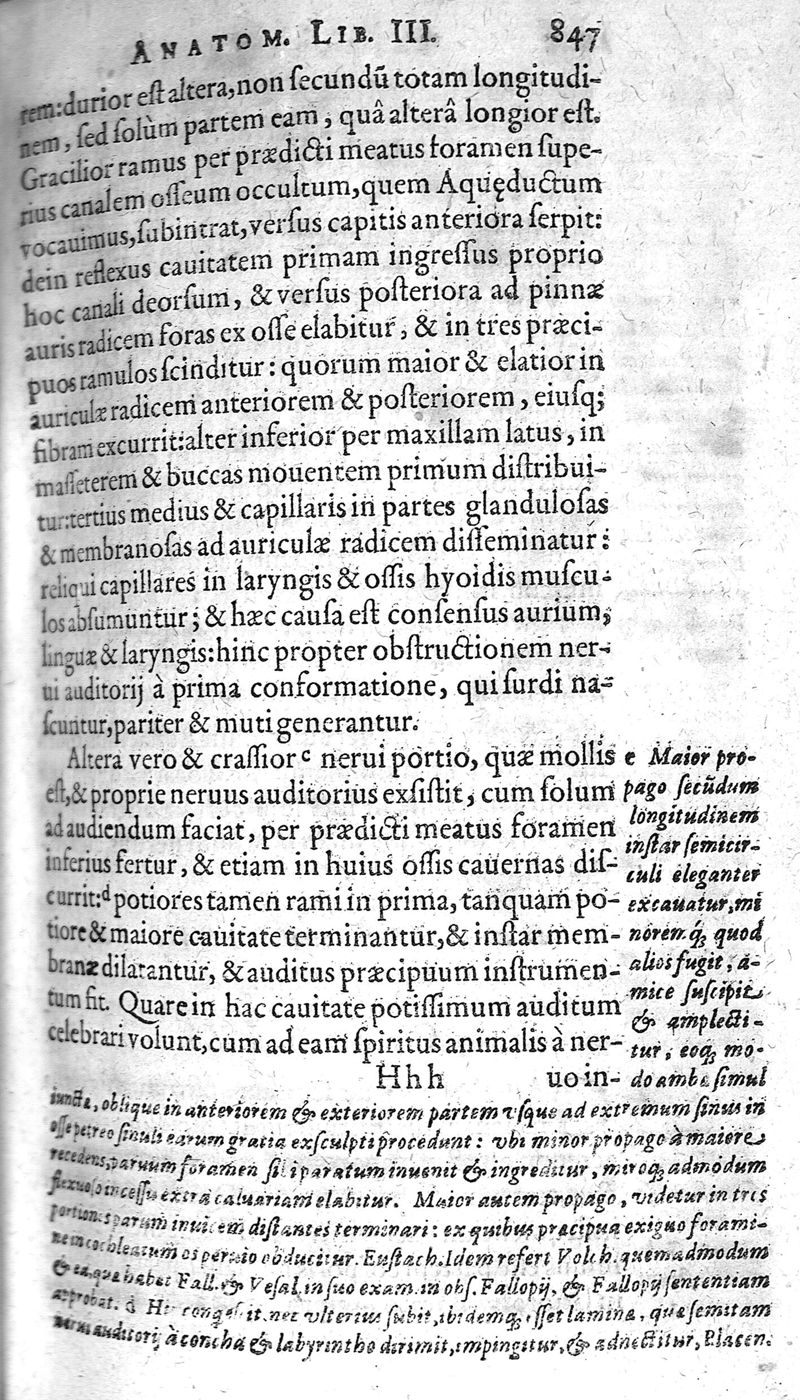 ANATOM. LIB. III. 847
rem: durior est altera, non secundū totam longitudi-
nem, sed solùm partem eam, quâ alterâ longior est.
Gracilior ramus per prædicti meatus foramen supe-
rius canalem osseum occultum, quem Aquęductum
vocauimus, subintrat, versus capitis anteriora serpit:
dein reflexus cauitatem primam ingressus proprio
hoc canali deorsum, & versus posteriora ad pinnæ
auris radicem foras ex osse elabitur, & in tres præci-
puos ramulos scinditur: quorum maior & elatior in
auriculæ radicem anteriorem & posteriorem, eiusq;
fibram excurrit: alter inferior per maxillam latus, in
masseterem & buccas mouentem primum distribui-
tur: tertius medius & capillaris in partes glandulosas
& membranosas ad auriculæ radicem disseminatur:
reliqui capillares in laryngis & ossis hyoidis muscu-
los absumuntur; & hæc causa est consensus aurium,
linguæ & laryngis: hinc propter obstructionem ner-
ui auditorij à prima conformatione, qui surdi na-
scuntur, pariter & muti generantur.
Altera vero & crassior c nerui portio, quæ mollis
est, & proprie neruus auditorius exsistit, cum solum
ad audiendum faciat, per prædicti meatus foramen
inferius fertur, & etiam in huius ossis cauernas dis-
currit: d potiores tamen rami in prima, tanquam po-
tiore & maiore cauitate terminantur, & instar mem-
branæ dilatantur, & auditus præcipuum instrumen-
tum fit. Quare in hac cauitate potissimum auditum
celebrari volunt, cum ad eam spiritus animalis à ner-
Hhh uo in-
c Maior pro-
pago secūdum
longitudinem
instar semicir-
culi eleganter
excauatur, mi
norem q́; quod
alios fugit, a-
mice suscipit
& amplecti-
tur, eoq; mo-
do ambæ simul
iunctæ, oblique in anteriorem & exteriorem partem vsque ad extremum sinus in
osse petreo sinuli earum gratia exsculpti procedunt: vbi minor propago à maiore
recedens, paruum foramen sibi paratum inuenit & ingreditur, miroq; admodum
flexuoso incessu extra caluariam elabitur. Maior autem propago, videtur in tres
portiones parum inuicem distantes terminari: ex quibus præcipua exiguo forami-
nem cochleatum os peruio obducitur. Eustach. Idem refert Volch. quemadmodum
& ea, quæ habet Fall. & Vesal. in suo exam. in obs. Fallopij, & Fallopij sententiam
approbat. d Hic it, nec vlterius subit, ibidemq; esset lamina, quæ semitam
auditorij à concha & labyrintho dirimit, impingitur, & adnectitur, Placen.